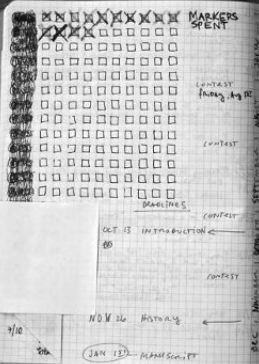 MARKERS
SPENT
CONTEST
Friday, Aug
CONTEST
DEADLINES
CONTEST
OCT 13 INTRODUCTION
CONTEST
NOV 26 HISTORY
9/10
title
JAN 13 MANUSCRIPT